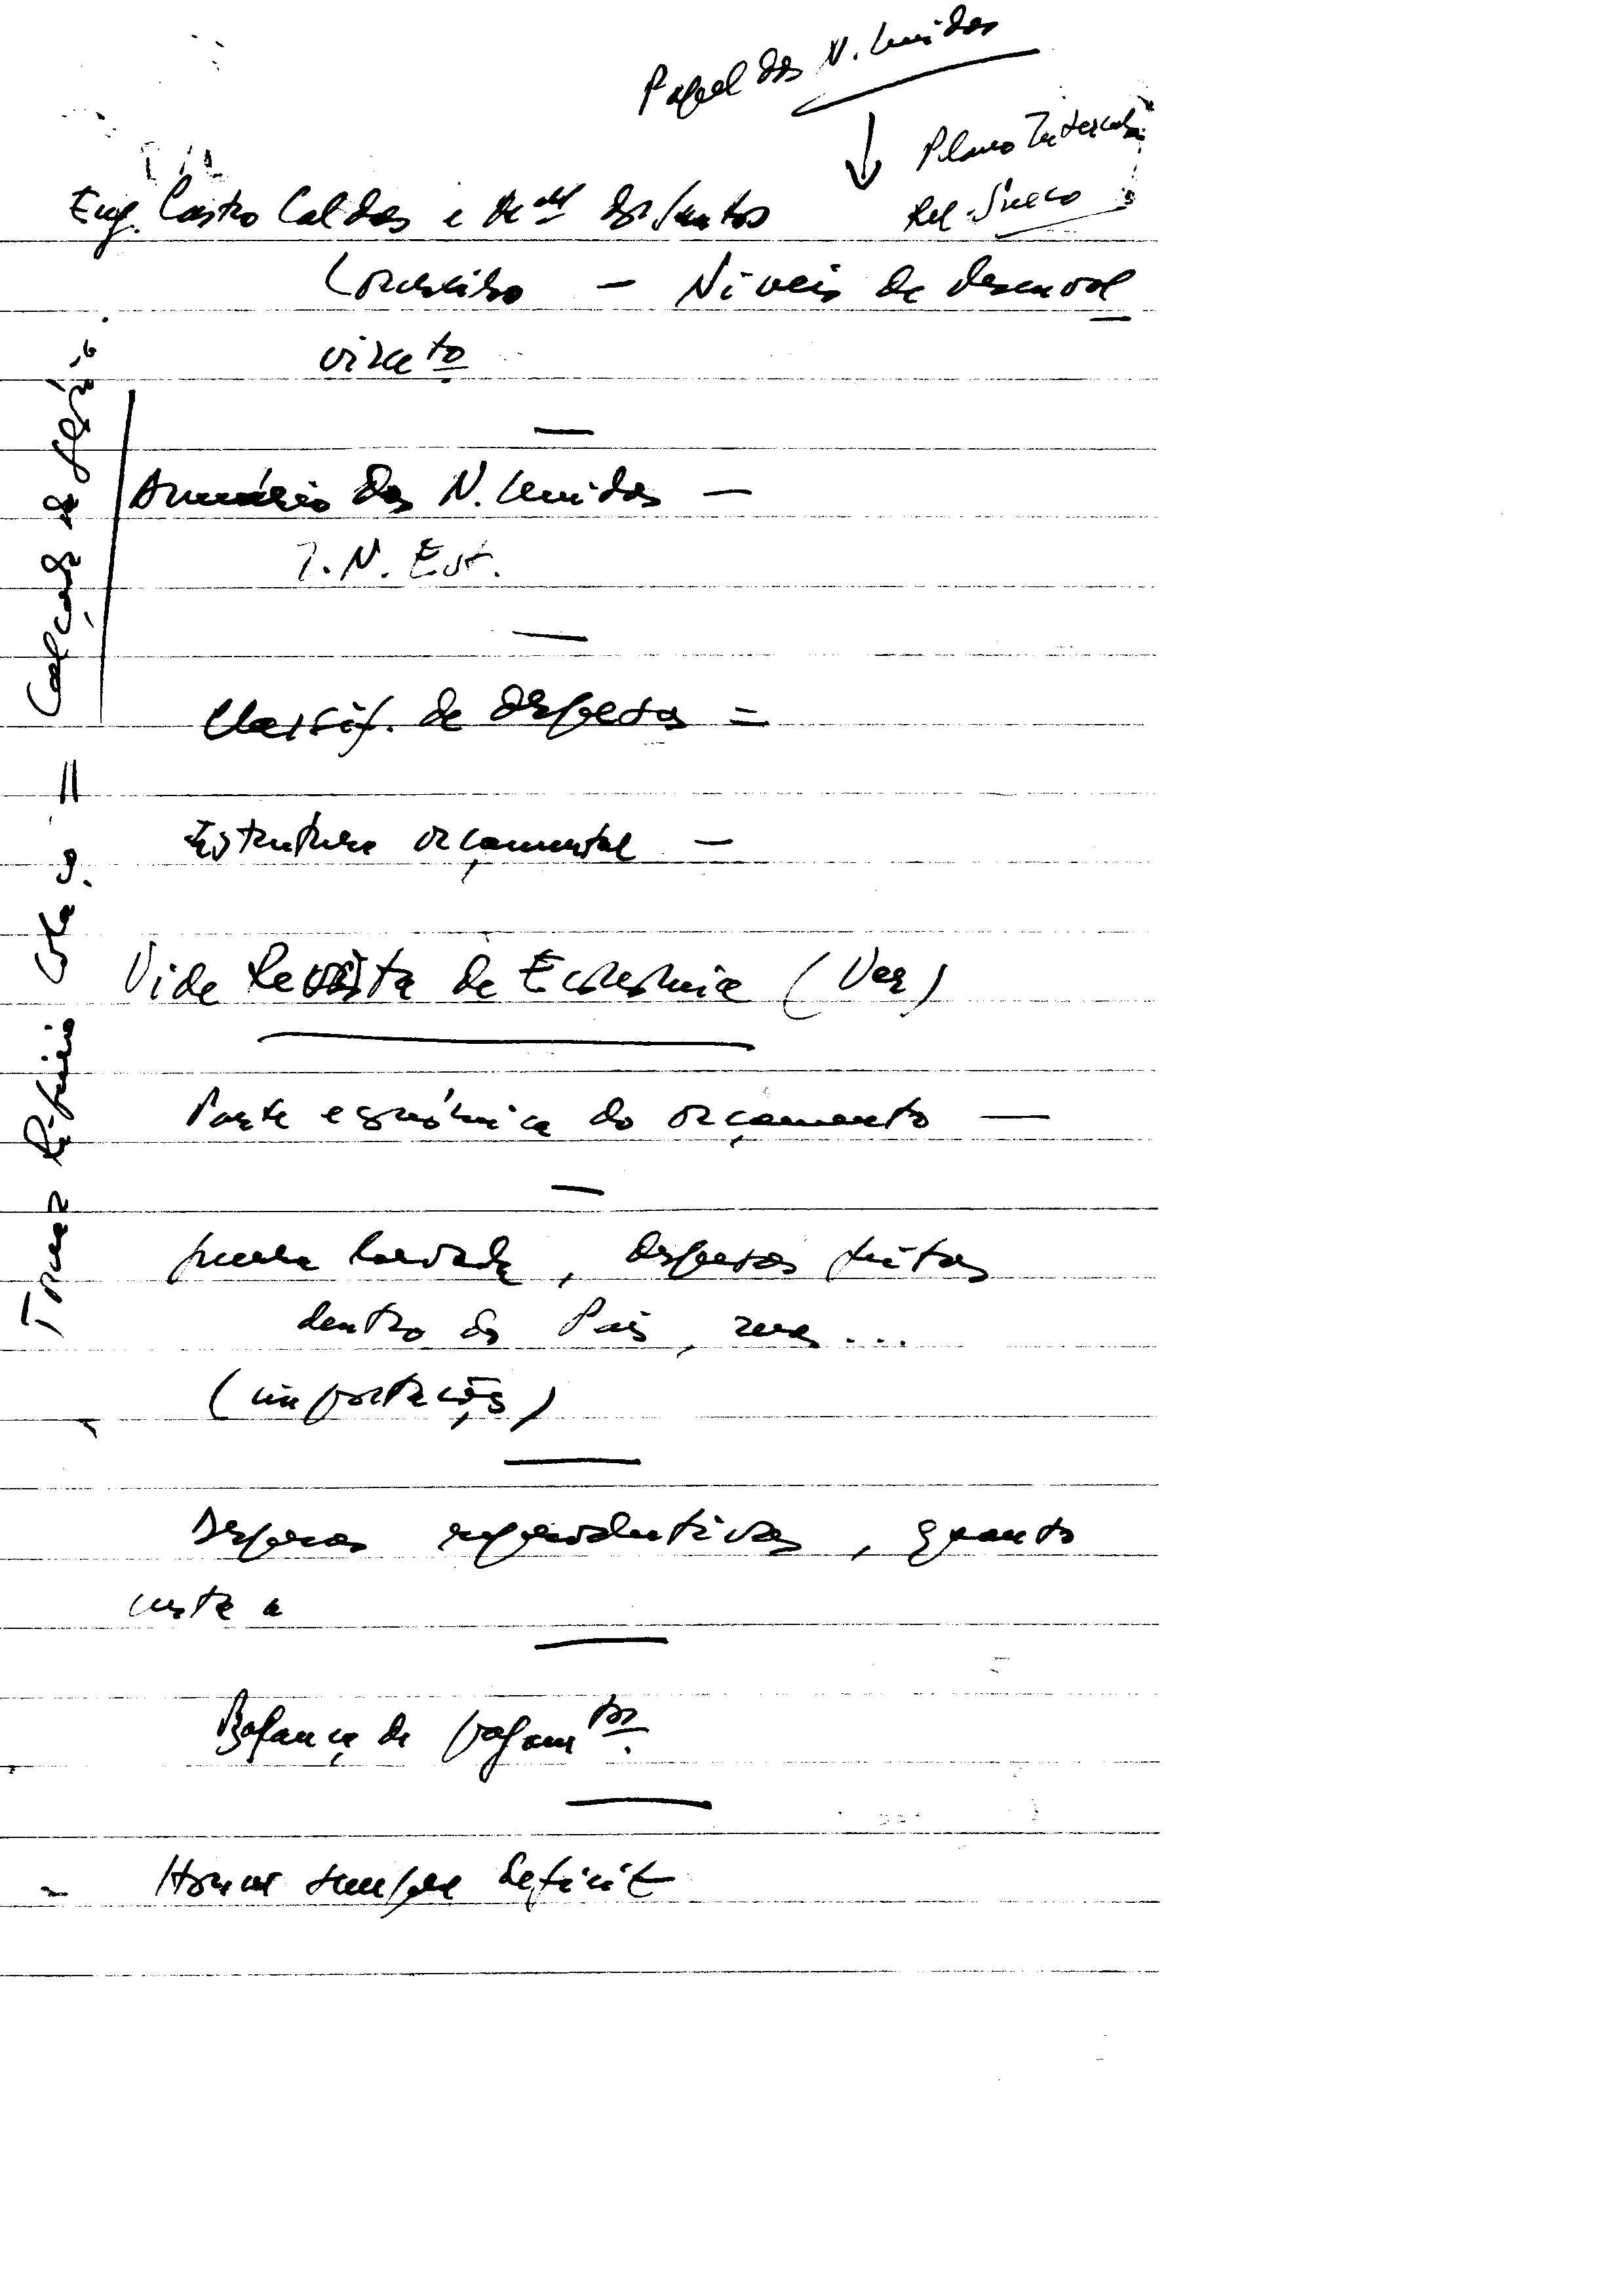 Papel das N. Unidas
Plano Intercalar
Rel. Sueco
Eng. Castro Caldas e Mel dos Santos
Loureiro — Níveis de desenvol
vimto
—
Anuário das N. Unidas —
I. N. Est.
—
Classif. de despesas =
Estrutura orçamental —
Vide Revista de Economia (Ver)
Parte económica do orçamento —
—
despesas feitas
dentro do País,
(importação)
Despesas reprodutivas, quanto
custa a
Balança de pagamtos.
Houve sempre deficit